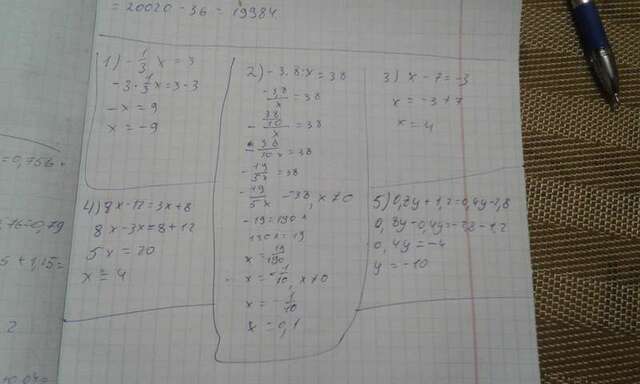 = 20020 - 36 = 19984
1) - 1/3 x = 3
-3 · 1/3 x = 3 · 3
-x = 9
x = -9
2) -3,8 · x = 38
-3,8/x = 38
- 38/10/x = 38
- 38/10x = 38
- 19/5x = 38
- 19/5x = 38, x ≠ 0
-19 = 190x
190x = 19
x = 19/190
x = - 1/10, x ≠ 0
x = - 1/10
x = 0,1
3) x - 7 = -3
x = -3 + 7
x = 4
4) 8x - 12 = 3x + 8
8x - 3x = 8 + 12
5x = 20
x = 4
5) 0,8y + 1,2 = 0,4y - 2,8
0,8y - 0,4y = -2,8 - 1,2
0,4y = -4
y = -10
= 0,756
76 = 0,79
5 + 1,15 =
2